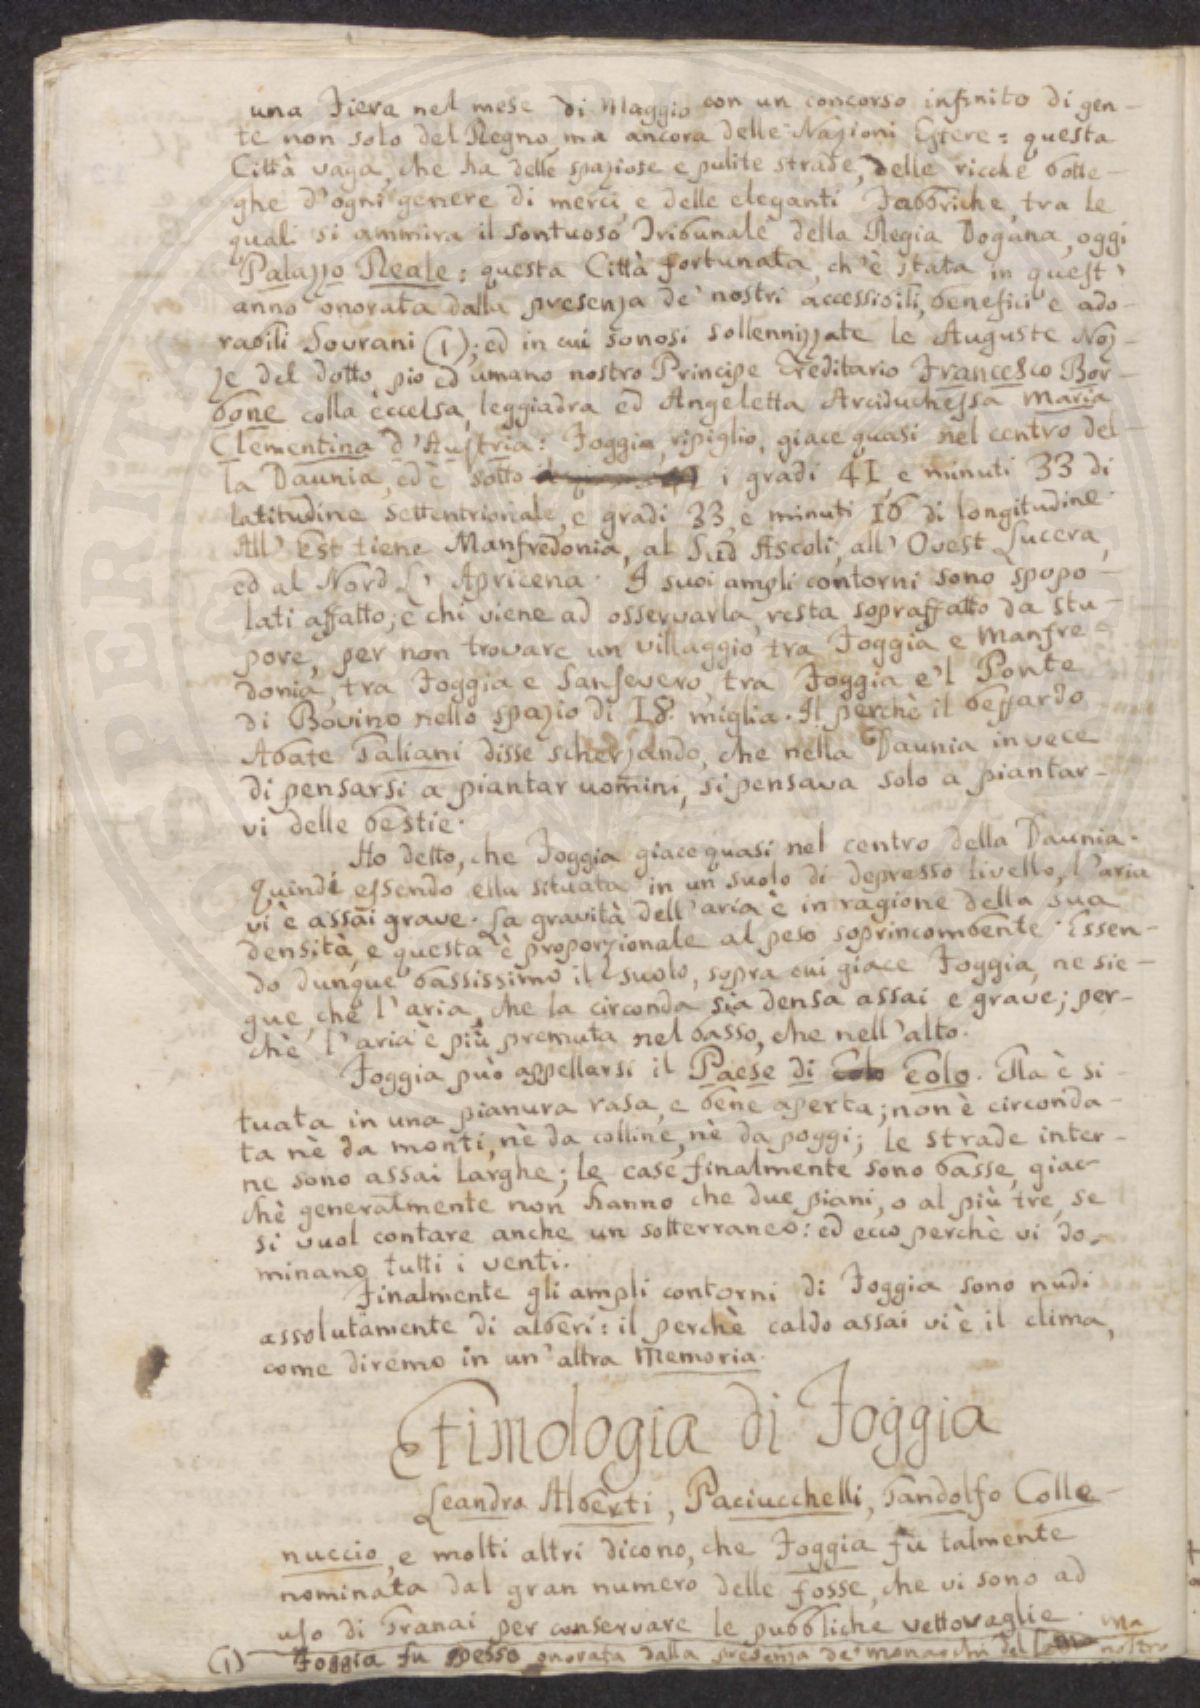 una Fiera nel mese di Maggio con un concorso infinito di gen-
te non solo del Regno, ma ancora delle Nazioni Estere: questa
Città vaga, che ha delle spaziose e pulite strade, delle ricche botte-
ghe d'ogni genere di merci, e delle eleganti Fabbriche, tra le
quali si ammira il sontuoso Tribunale della Regia Dogana, oggi
Palazzo Reale: questa Città fortunata, ch'è stata in quest'
anno onorata dalla presenza de' nostri accessibili, benefici e ado-
rabili Sovrani (1); ed in cui sonosi sollennizzate le Auguste Noz-
ze del dotto, pio ed umano nostro Principe Ereditario Francesco Bor-
bone colla eccelsa, leggiadra ed Angeletta Arciduchessa Maria
Clementina d'Austria: Foggia, ripiglio, giace quasi nel centro del-
la Daunia, ed è sotto i gradi 41, e minuti 33 di
latitudine settentrionale, e gradi 33, e minuti 16 di longitudine.
All' Est tiene Manfredonia, al Sud Ascoli, all' Ovest Lucera,
ed al Nord L' Apricena. I suoi ampli contorni sono spopo-
lati affatto; e chi viene ad osservarla, resta sopraffatto da stu-
pore, per non trovare un villaggio tra Foggia e Manfre-
donia, tra Foggia e Sansevero, tra Foggia e'l Ponte
di Bovino nello spazio di 18. miglia. Il perchè il beffardo
Abate Galiani disse scherzando, che nella Daunia invece
di pensarsi a piantar uomini, si pensava solo a piantar-
vi delle bestie.
Ho detto, che Foggia giace quasi nel centro della Daunia.
Quindi essendo ella situata in un suolo di depresso livello, l'aria
vi è assai grave. La gravità dell'aria è in ragione della sua
densità, e questa è proporzionale al peso soprincombente. Essen-
do dunque bassissimo il suolo, sopra cui giace Foggia, ne sie-
gue, che l'aria, che la circonda sia densa assai e grave; per-
chè l'aria è più premuta nel basso, che nell'alto.
Foggia può appellarsi il Paese di Eolo. Ella è si-
tuata in una pianura rasa, e bene aperta; non è circonda-
ta nè da monti, nè da colline, nè da poggi; le strade inter-
ne sono assai larghe; le case finalmente sono basse, giac-
chè generalmente non hanno che due piani, o al più tre, se
si vuol contare anche un sotterraneo: ed ecco perchè vi do-
minano tutti i venti.
Finalmente gli ampli contorni di Foggia sono nudi
assolutamente di alberi: il perchè caldo assai vi è il clima,
come diremo in un'altra Memoria.
Etimologia di Foggia
Leandro Alberti, Paciucchelli, Gandolfo Colle-
nuccio, e molti altri dicono, che Foggia fù talmente
nominata dal gran numero delle fosse, che vi sono ad
uso di Granai per conservare le pubbliche vettovaglie. ma
(1) Foggia fu spesso onorata dalla presenza de' monarchi del nostro